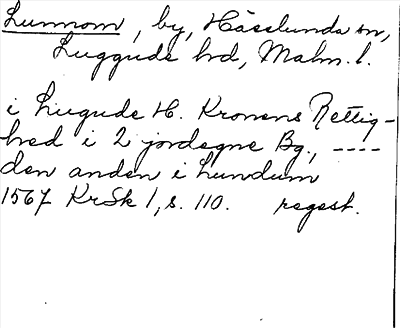 Lunnom, by, Hässlunda sn,
Luggude hd, Malm. l.
i Liugude H. Kronens Rettig-
hed i 2 jordegne Bg., ----
den anden i Lundum
1567 KrSk 1, s. 110. regest.